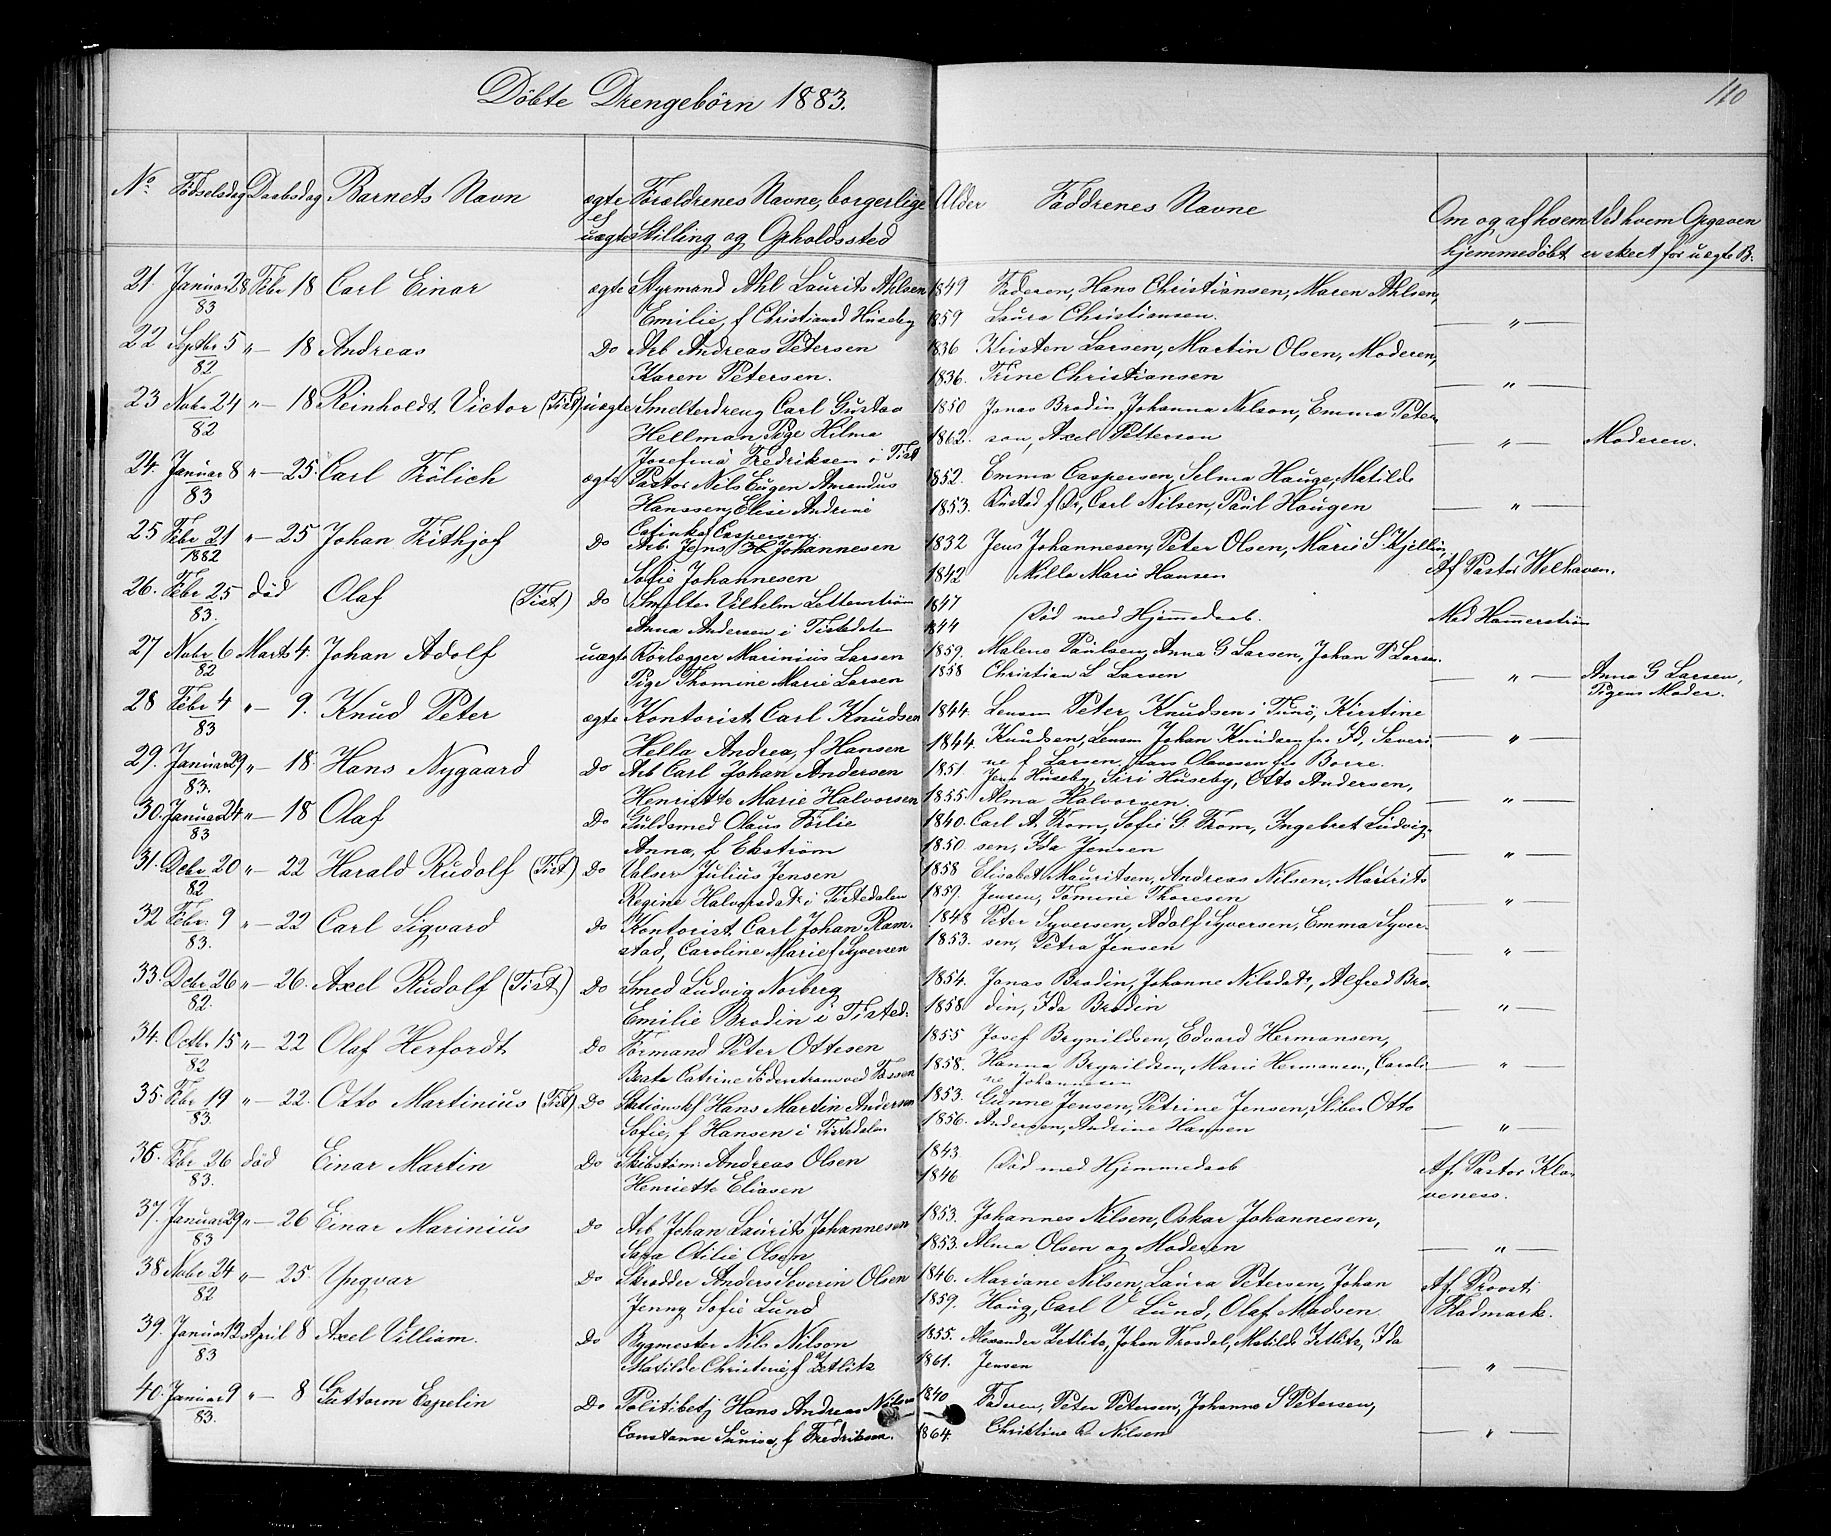 Döbte Drengebörn 1883.
110
No. Födselsdag Daabsdag Barnets Navn ægte el uægte Forældrenes Navne, borgerlige Stilling og Opholdssted Alder Faddrenes Navne Om og af hvem hjemmedöbt Ved hvem Opgaven er skeet for uægte B.
21 Januar 28 Febr 18 Carl Einar ægte Styrmand Ahl Laurits Ahlsen 1849 Faderen, Hans Christiansen, Maren Ahlsen,
83 Emilie, f Christiansd Huseby 1859 Laura Christiansen. — " —
22 Septbr 5 " — 18 Andreas Do Arb Andreas Petersen 1836 Kristen Larsen, Martin Olsen, Moderen,
82 Karen Petersen. 1836. Trine Christiansen — " —
23 Novbr 24 " — 18 Reinholdt Victor (Tist) uægte Smelterdreng Carl Gustav 1850 Jonas Brodin, Johanna Nilson, Emma Peter-
82 Hellman Pige Hilma 1862. son, Axel Petterson — " — Moderen.
Josefina Fredriksen i Tist
24. Januar 8 " — 25. Carl Frölich ægte Pastor Nils Eugen Amandus 1852. Emma Caspersen, Selma Hauge, Matilde
83 Hanssen, Elise Andrine 1853. Rustad f Dr, Carl Nilsen, Paul Haugen — " —
Cafinka Caspersen.
25 Febr 21 " — 25 Johan Frithjof Do Arb. Jens H Johannesen 1832 Jens Johannesen, Peter Olsen, Marie S. Kjellin,
1882 Sofie Johannesen 1842 Milla Marie Hansen Af Pastor Welhaven.
26. Febr 25 död Olaf (Tist) Do Smelter Vilhelm Letterström 1847
83. Anna Andersen i Tistedalen 1844 Död med Hjemmedaab. Mad Hammerström
27 Novbr 6 Marts 4. Johan Adolf uægte Rörlægger Marinius Larsen 1859. Malene Paulsen, Anna G Larsen, Johan P Larsen.
82 Pige Thomine Marie Larsen 1858 Christian L Larsen — " — Anna G Larsen, Pigens Moder.
28 Febr 4 " — 9. Knud Peter ægte Kontorist Carl Knudsen 1844. Lensm Peter Knudsen i Tunö, Kirstine
83 Hella Andrea, f Hansen 1844. Knudsen, Lensm Johan Knudsen fra Id, Severi- — " —
ne f Larsen, Hans Olavesen fra Borre.
29. Januar 29 " — 18. Hans Nygaard Do Arb Carl Johan Andersen 1851. Jens Huseby, Siri Huseby, Otto Andersen,
83. Henriette Marie Halvorsen 1855. Alma Halvorsen. — " —
30. Januar 24 " — 18 Olaf Do Guldsmed Olaus Förlie 1840. Carl A. From, Sofie G. From, Ingebret Ludvig-
83 Anna, f Ekström 1850. sen, Ida Jensen — " —
31. Debr 20 " — 22 Harald Rudolf (Tist) Do Valser Julius Jensen 1858 Elisabet Mauritsen, Andreas Nilsen, Maurits
82 Regine Halvorsdatr i Tistedalen 1859. Jensen, Tomine Thoresen — " —
32 Febr. 9 " — 22 Carl Sigvard Do Kontorist Carl Johan Ram- 1848 Peter Syversen, Adolf Syversen, Emma Syver-
83. stad, Caroline Marie f Syversen 1853. sen, Petra Jensen — " —
33. Debr 26 " — 26. Axel Rudolf (Tist) Do Smed Ludvig Norberg 1854. Jonas Brodin, Johanne Nilsdatr, Alfred Bro-
82. Emilie Brodin i Tisted. 1858. din, Ida Brodin — " —
34. Octbr 15 " — 22 Olaf Herfordt Do Formand Peter Ottesen 1855 Josef Brynildsen, Edvard Hermansen,
82 Beata Catrine Söderstrom ved Fossen 1858. Hanna Brynildsen, Marie Hermansen, Caroli- — " —
ne Johannesen
35. Febr 19 " — 22. Otto Martinius (Tist) Do Stationskf Hans Martin Andersen 1853. Gunne Jensen, Petrine Jensen, Stiber Otto
83. Sofie, f Hansen i Tistedalen 1856. Andersen, Andrine Hansen — " —
36. Febr 26 död Einar Martin Do Skibstöm: Andreas Olsen 1843
83. Henriette Eliasen 1846 Död med Hjemmedaab Af Pastor Kla-
veness.
37. Januar 29 " — 26 Einar Marinius Do Arb Johan Laurits Johannesen 1853. Johannes Nilsen, Oskar Johannesen,
83 Sara Otilie Olsen 1853. Alma Olsen og Moderen — " —
38 Novbr 24 " — 25. Yngvar Do Skrædder Anders Severin Olsen 1846. Mariane Nilsen, Laura Petersen, Johan Af Provst
82 Jenny Sofie Lund 1859. Houg, Carl V Lund, Olaf Madsen Fladmark.
39. Januar 12 April 8 Axel Villiam. Do Bygmester Nils Nilson 1855. Alexander Zetlitz, Johan Trosdal, Matilde Zetlitz, Ida
83 Matilde Christine, f Zetlitz 1861. Jensen — " —
40. Januar 9 " — 8 Guttorm Espelin Do Politibetj Hans Andreas Nilsen 1840 Faderen, Peter Petersen, Johanne S Petersen,
83. Constanse Sunive, f Fredriksen. 1864. Christine D Nilsen — " —